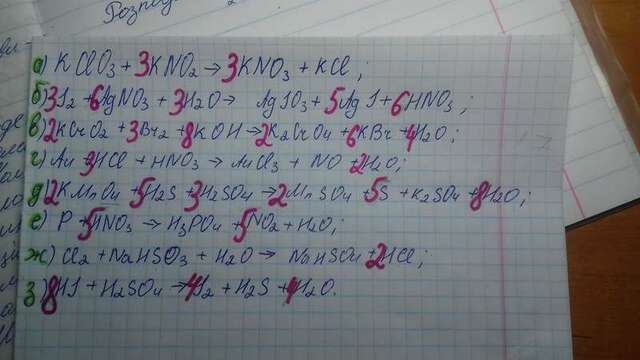 Розпод
а) KClO₃ + 3KNO₂ → 3KNO₃ + KCl ;
б) 3J₂ + 6AgNO₃ + 3H₂O → AgJO₃ + 5AgJ + 6HNO₃ ;
в) 2KCrO₂ + 3Br₂ + 8KOH → 2K₂CrO₄ + 6KBr + 4H₂O ;
г) Au + 3HCl + HNO₃ → AuCl₃ + NO + 2H₂O ;
д) 2KMnO₄ + 5H₂S + 3H₂SO₄ → 2MnSO₄ + 5S + K₂SO₄ + 8H₂O ;
е) P + 5HNO₃ → H₃PO₄ + 5NO₂ + H₂O ;
ж) Cl₂ + NaHSO₃ + H₂O → NaHSO₄ + 2HCl ;
з) 8HJ + H₂SO₄ → 4J₂ + H₂S + 4H₂O .